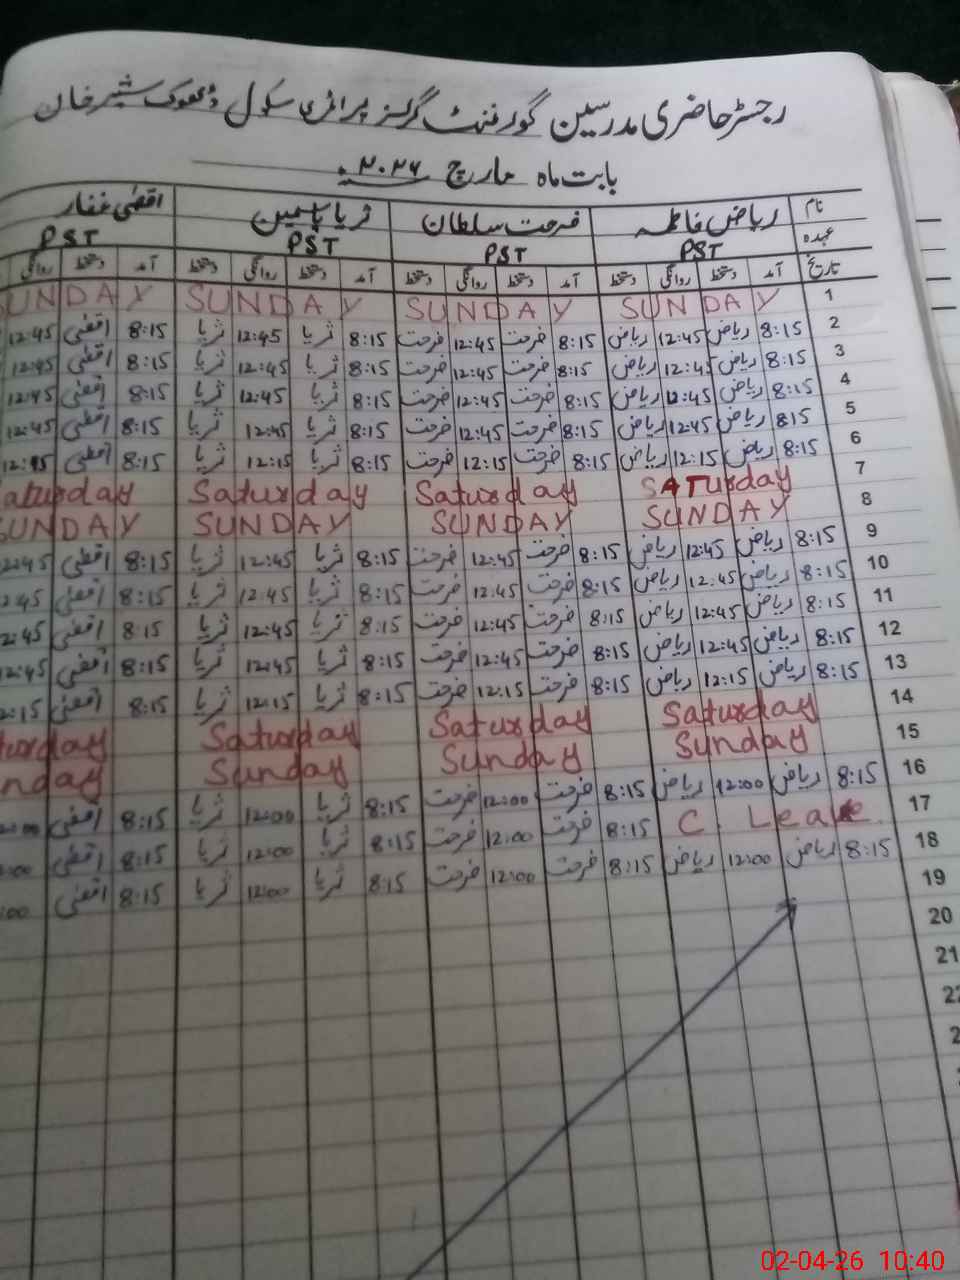 رجسٹر حاضری مدرسین گورنمنٹ گرلز پرائمری سکول ڈھوک شیر خان
بابت ماہ مارچ ۲۰۲۶ء
نام ریاض فاطمہ فرحت سلطان ثریا یاسمین اقصٰی غفار
عہدہ PST PST PST PST
تاریخ آمد دستخط روانگی دستخط آمد دستخط روانگی دستخط آمد دستخط روانگی دستخط آمد دستخط روانگی
1 SUNDAY SUNDAY SUNDAY SUNDAY
2 8:15 ریاض 12:45 ریاض 8:15 فرحت 12:45 فرحت 8:15 ثریا 12:45 ثریا 8:15 اقصٰی 12:45
3 8:15 ریاض 12:45 ریاض 8:15 فرحت 12:45 فرحت 8:15 ثریا 12:45 ثریا 8:15 اقصٰی 12:45
4 8:15 ریاض 12:45 ریاض 8:15 فرحت 12:45 فرحت 8:15 ثریا 12:45 ثریا 8:15 اقصٰی 12:45
5 815 ریاض 12:45 ریاض 8:15 فرحت 12:45 فرحت 8:15 ثریا 12:45 ثریا 8:15 اقصٰی 12:45
6 8:15 ریاض 12:15 ریاض 8:15 فرحت 12:15 فرحت 8:15 ثریا 12:15 ثریا 8:15 اقصٰی
7 SATurday Saturday Saturday aturday
8 SUNDAY SUNDAY SUNDAY SUNDAY
9 8:15 ریاض 12:45 ریاض 8:15 فرحت 12:45 فرحت 8:15 ثریا 12:45 ثریا 8:15 اقصٰی 2:45
10 8:15 ریاض 12:45 ریاض 8:15 فرحت 12:45 فرحت 8:15 ثریا 12:45 ثریا 8:15 اقصٰی 2:45
11 8:15 ریاض 12:45 ریاض 8:15 فرحت 12:45 فرحت 8:15 ثریا 12:45 ثریا 8:15 اقصٰی 2:45
12 8:15 ریاض 12:45 ریاض 8:15 فرحت 12:45 فرحت 8:15 ثریا 12:45 ثریا 8:15 اقصٰی 12:45
13 8:15 ریاض 12:15 ریاض 8:15 فرحت 12:15 فرحت 8:15 ثریا 12:15 ثریا 8:15 اقصٰی 2:15
14 Saturday Saturday Saturday turday
15 Sunday Sunday Sunday nday
16 8:15 ریاض 12:00 ریاض 8:15 فرحت 12:00 فرحت 8:15 ثریا 12:00 ثریا 8:15 اقصٰی :00
17 C. Leave 8:15 فرحت 12:00 فرحت 8:15 ثریا 12:00 ثریا 8:15 اقصٰی :00
18 8:15 ریاض 12:00 ریاض 8:15 فرحت 12:00 فرحت 8:15 ثریا 12:00 ثریا 8:15 اقصٰی :00
19
20
21
22
02-04-26 10:40